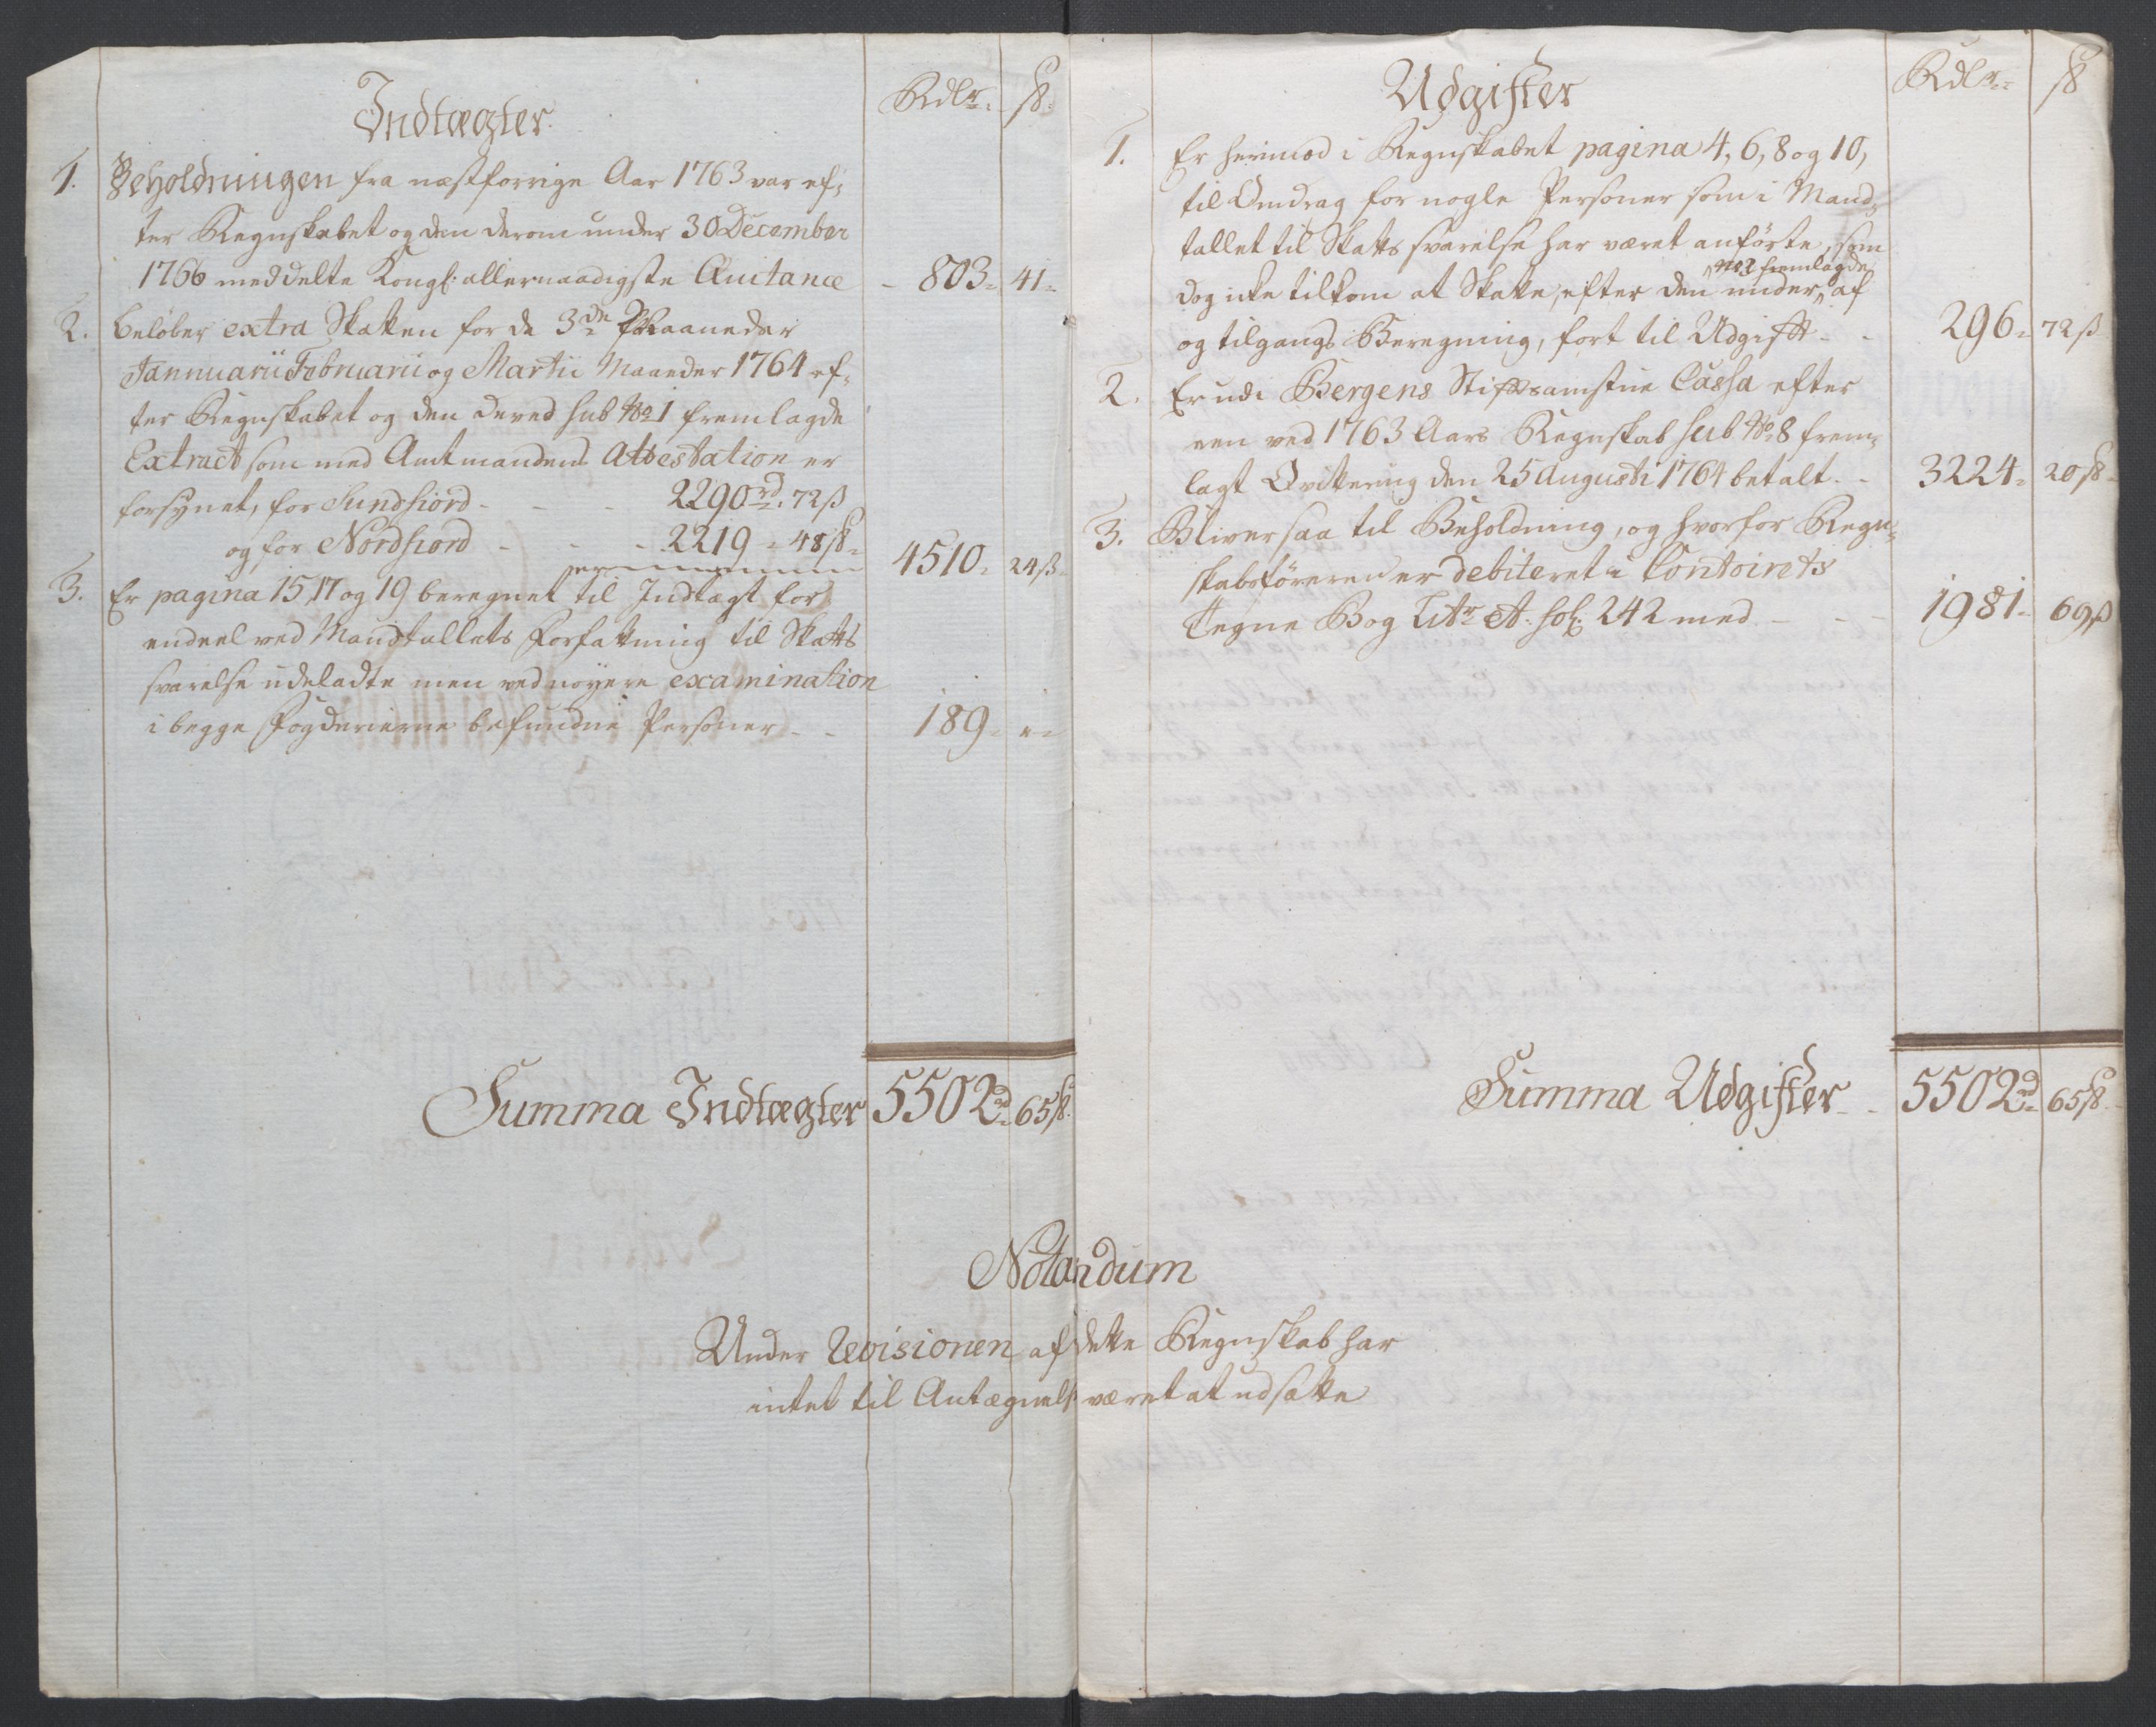 Indtægter. Rdlr. ſß.
1. Beholdningen fra næstforrige Aar 1763 var ef-
ter Regnskabet og den derom under 30 December
1766 meddelte Kongl: allernaadigste Quitance - 803 - 41 -
2. beløber extra Skatten for de 3de Maaneder
Jannuarii Februarii og Martii Maaneder 1764 ef-
ter Regnskabet og den derved sub No 1 fremlagde
Extract som med Amtmandens Attestation er
forsynet, for Sundfiord - - - 2290 rd. 72 ß
og for Nordfiord - - - 2219 - 48 ß - 4510 - 24 ß
3. Er pagina 15, 17 og 19 beregnet til Indtægt for
endeel ved Mandtallets Forfattning til Skatts
svarelse udeladte men ved nøyere examination
i begge Fogderierne befundne Personer - - 189 - " -
Summa Indtægter 5502 rd. 65 ß.
Udgifter Rdlr. ſß
1. Er herimod i Regnskabet pagina 4, 6, 8 og 10,
til Omdrag for nogle Personer som i Mand-
tallet til Skatts svarelse har været anførte, som
dog icke tilkom at Skatte, efter den under No 2 fremlagde af
og tilgangs Beregning, ført til Udgift - - 296 - 72 ß
2. Er udi Bergens Stiftsamstue Cassa efter
een ved 1763 Aars Regnskab sub No 8 frem-
lagt Qvittering den 25 Augusti 1764 betalt. - 3224 - 20 ß -
3. Bliver saa til Beholdning, og hvorfor Regn-
skabsføreren er debiteret i Contoirets
Tegne Bog Litr A. fol: 242 med - - - 1981 - 69 ß
Summa Udgifter - - 5502 rd. 65 ß -
Notandum
Under Revisionen af dette Regnskab har
intet til Antægnelse været at udsætte